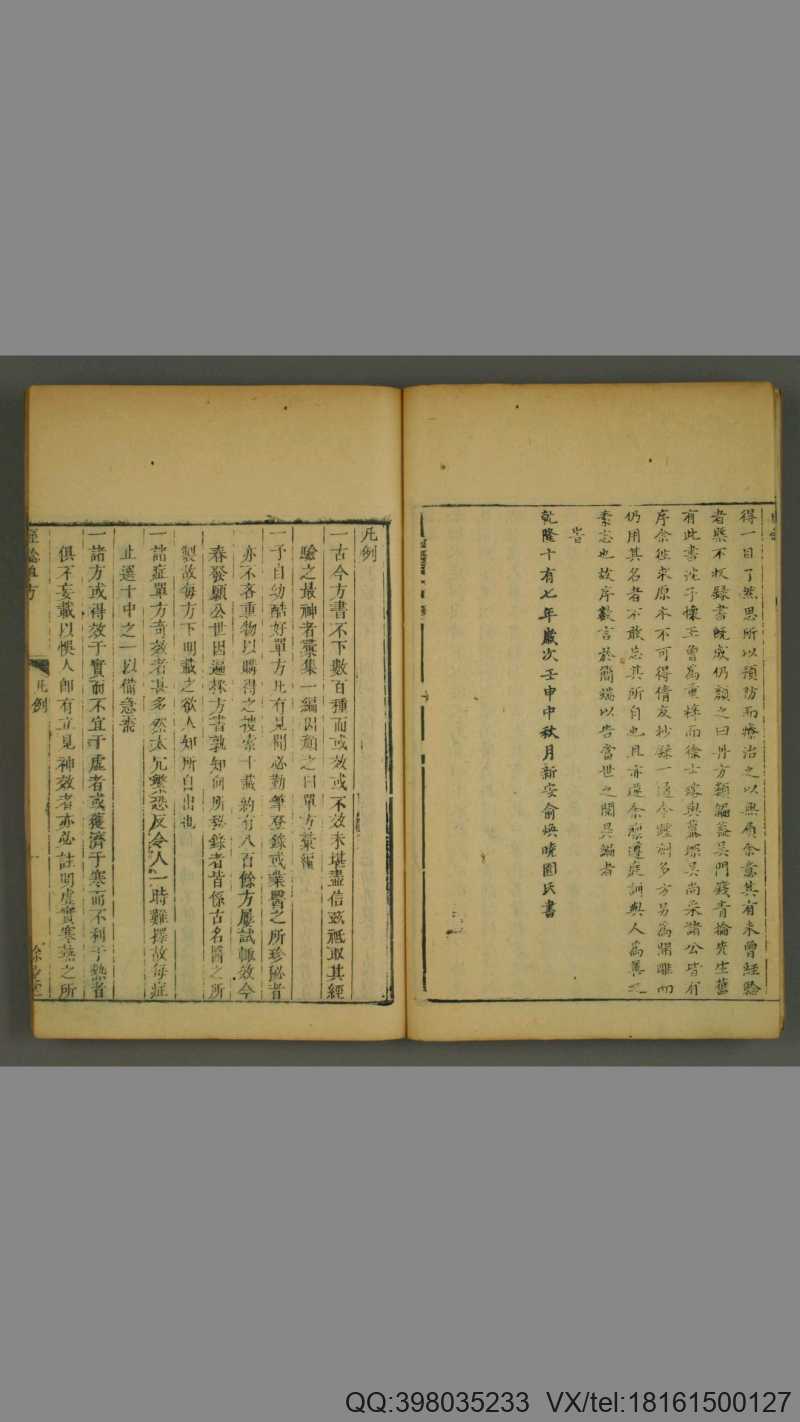 得一目了然思所以預防而療治之以無負余意其有未曾經驗
者槩不收錄書既成仍顏之曰丹方類編蓋吳門錢青掄先生舊
有此書沈子懷玉曾為重梓而徐士 與 尚采諸公皆有
序余徃求原本不可得倩友抄錄一通今雖刪多方另為開雕而
仍用其名者不敢忘其所自也且亦遂余 遵庭訓與人為善之
素志也故序數言於簡端以告當世之閱是編者
旹
乾隆十有七年歲次壬申中秋月新安俞煥曉園氏書
凡例
一古今方書不下數百種而或效或不效未堪盡信兹祗取其經
驗之最神者彙集一編因顏之曰單方彙編
一予自幼酷好單方凡有見聞必勤筆登錄或業醫之所珍秘者
亦不吝重物以購得之搜索十載約有八百餘方屢試輙效今
春發願公世因遍採方書孰知向所 錄者皆係古名醫之所
製故每方下明載之欲人知所自出也
一諸症單方奇效者甚多然太冗繁恐反令人一時難擇故每症
止選十中之一以備急需
一諸方或得效于實而不宜于虛者或獲濟于寒而不利于熱者
俱不妄載以悞人卽有立見神效者亦必註明虛實寒熱之所
經驗單方
凡例
QQ:398035233 VX/tel:18161500127